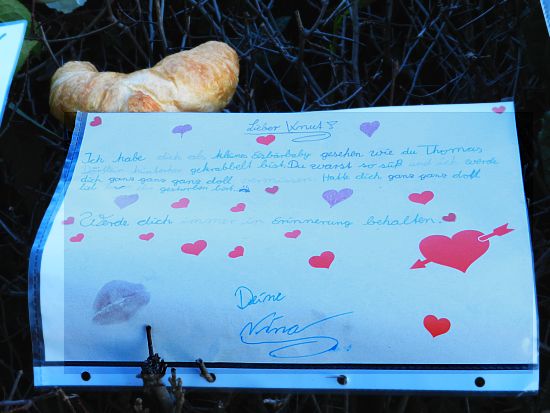 Lieber Knut!
Ich habe dich als kleines Eisbärbaby gesehen wie du Thomas
Dörflein hinterher gekrabbelt bist. Du warst so süß und ich werde
dich ganz ganz ganz doll vermissen. Hatte dich ganz ganz doll
gestorben bist.
Werde dich immer in Erinnerung behalten.
Deine
Nina